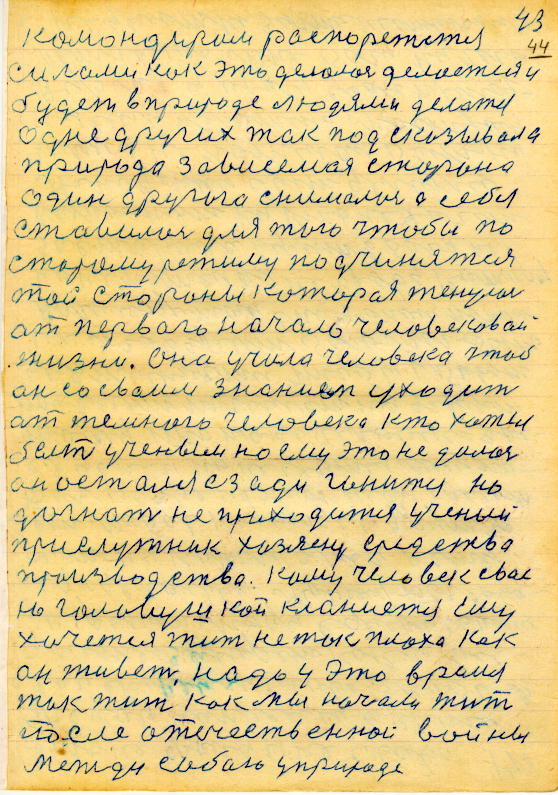 43
44
командирам распорежется
силами как это делалоя делается и
будет в природе людями делатя
Одне других так подсказывала
природа зависемая сторона
один другога снималоя а себя
ставилоя для того чтобы по
старому режиму подчинятся
той стораны которая тенулоя
от первага начало человековай
жизни. Она учила человека чтоб
он со сваим знанием уходит
от темнаго человека кто хотел
быт ученым но ему это не далоя
он остался сзади гонитя но
догнат не приходится ученый
прислужник хозяену средства
производства. Кому человек свае
ю головушкой кланиется ему
хочется жит не так плоха как
он живет. надо у это время
так жит как мы начали жит
После отечественной войны
между сабаю у природе